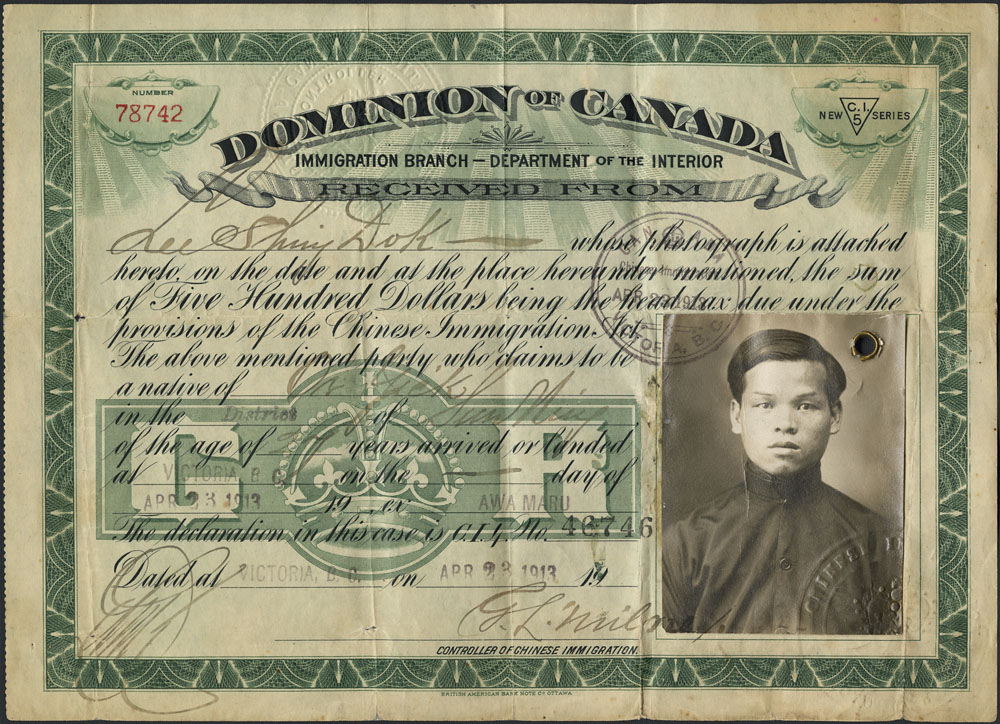 NUMBER
78742
NEW C.I. 5 SERIES
DOMINION OF CANADA
IMMIGRATION BRANCH — DEPARTMENT OF THE INTERIOR
RECEIVED FROM
Lee Shing Dok — whose photograph is attached
hereto, on the date and at the place hereunder mentioned, the sum
of Five Hundred Dollars being the head tax due under the
provisions of the Chinese Immigration Act.
The above mentioned party who claims to be
a native of
in the District of
of the age of years arrived or landed
at VICTORIA, B. C. on the — day of
APR 23 1913 19 , ex AWA MARU
The declaration in this case is C.I.4. No. 46746
Dated at VICTORIA, B. C. on APR 23 1913 19
G. L. Milne
CONTROLLER OF CHINESE IMMIGRATION.
BRITISH AMERICAN BANK NOTE CO. OTTAWA.
APR 23 1913
VICTORIA, B.C.